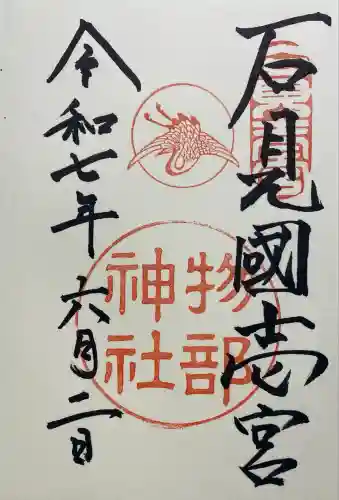 石見國壱宮
物部
神社
令和七年
六月二日